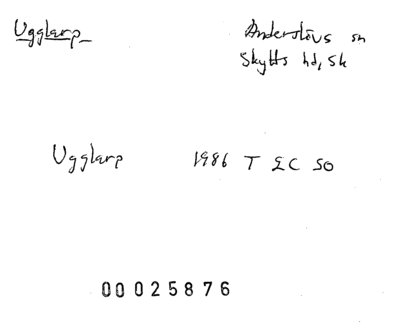 Ugglarp
Anderslövs sn
Skytts hd, Sk
Ugglarp 1986 T £C SO
00025876